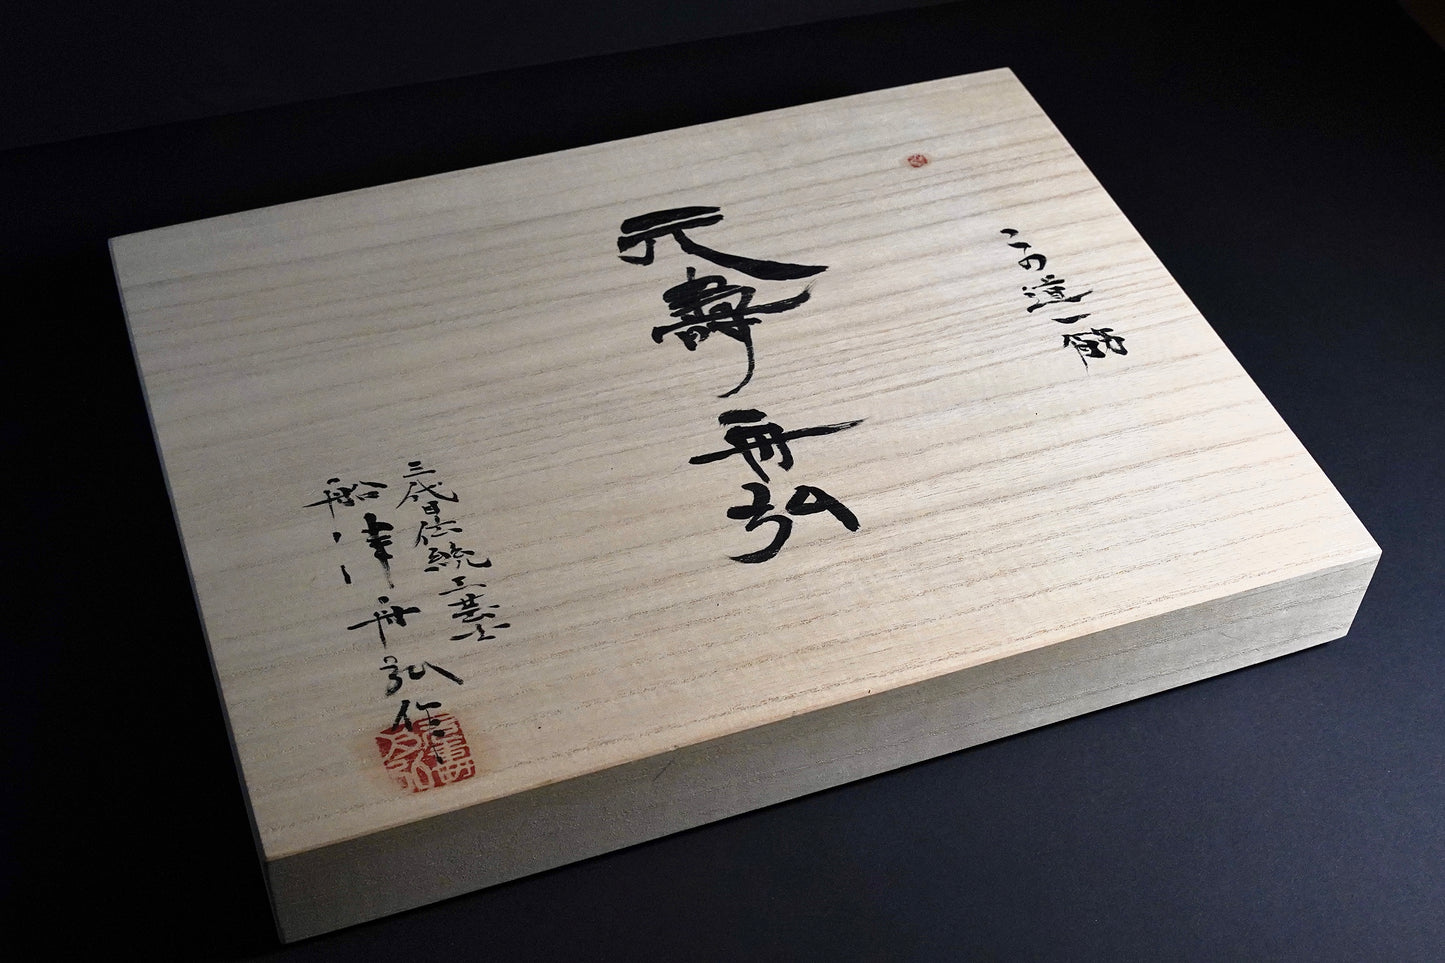 この道一筋
元壽 舟弘
三代目伝統工芸士
船津舟弘作